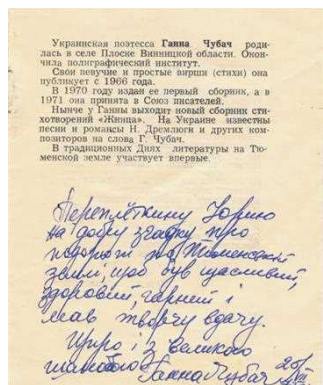 Украинская поэтесса Ганна Чубач роди-
лась в селе Плоске Винницкой области. Окон-
чила полиграфический институт.
Свои певучие и простые вирши (стихи) она
публикует с 1966 года.
В 1970 году издан ее первый сборник, а в
1971 она принята в Союз писателей.
Нынче у Ганны выходит новый сборник сти-
хотворений «Жниця». На Украине известны
песни и романсы Н. Дремлюги и других ком-
позиторов на слова Г. Чубач.
В традиционных Днях литературы на Тю-
менской земле участвует впервые.
Переплёткину Юрию
на добру згадку про
подорож по Тюменській
землі, щоб був щасливий,
здоровий, гарний і
мав творчу вдачу.
Щиро і з великою
шаною Ганна Чубач